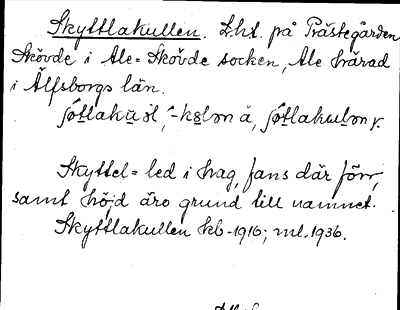 Skyttlakullen. Lht. på Prästegården
Skövde i Ale-Skövde socken, Ale härad
i Älfsborgs län.
Skyttel = led i hag, fans där förr,
samt höjd äro grund till namnet.
Skyttlakullen kb-1916; ml. 1936.